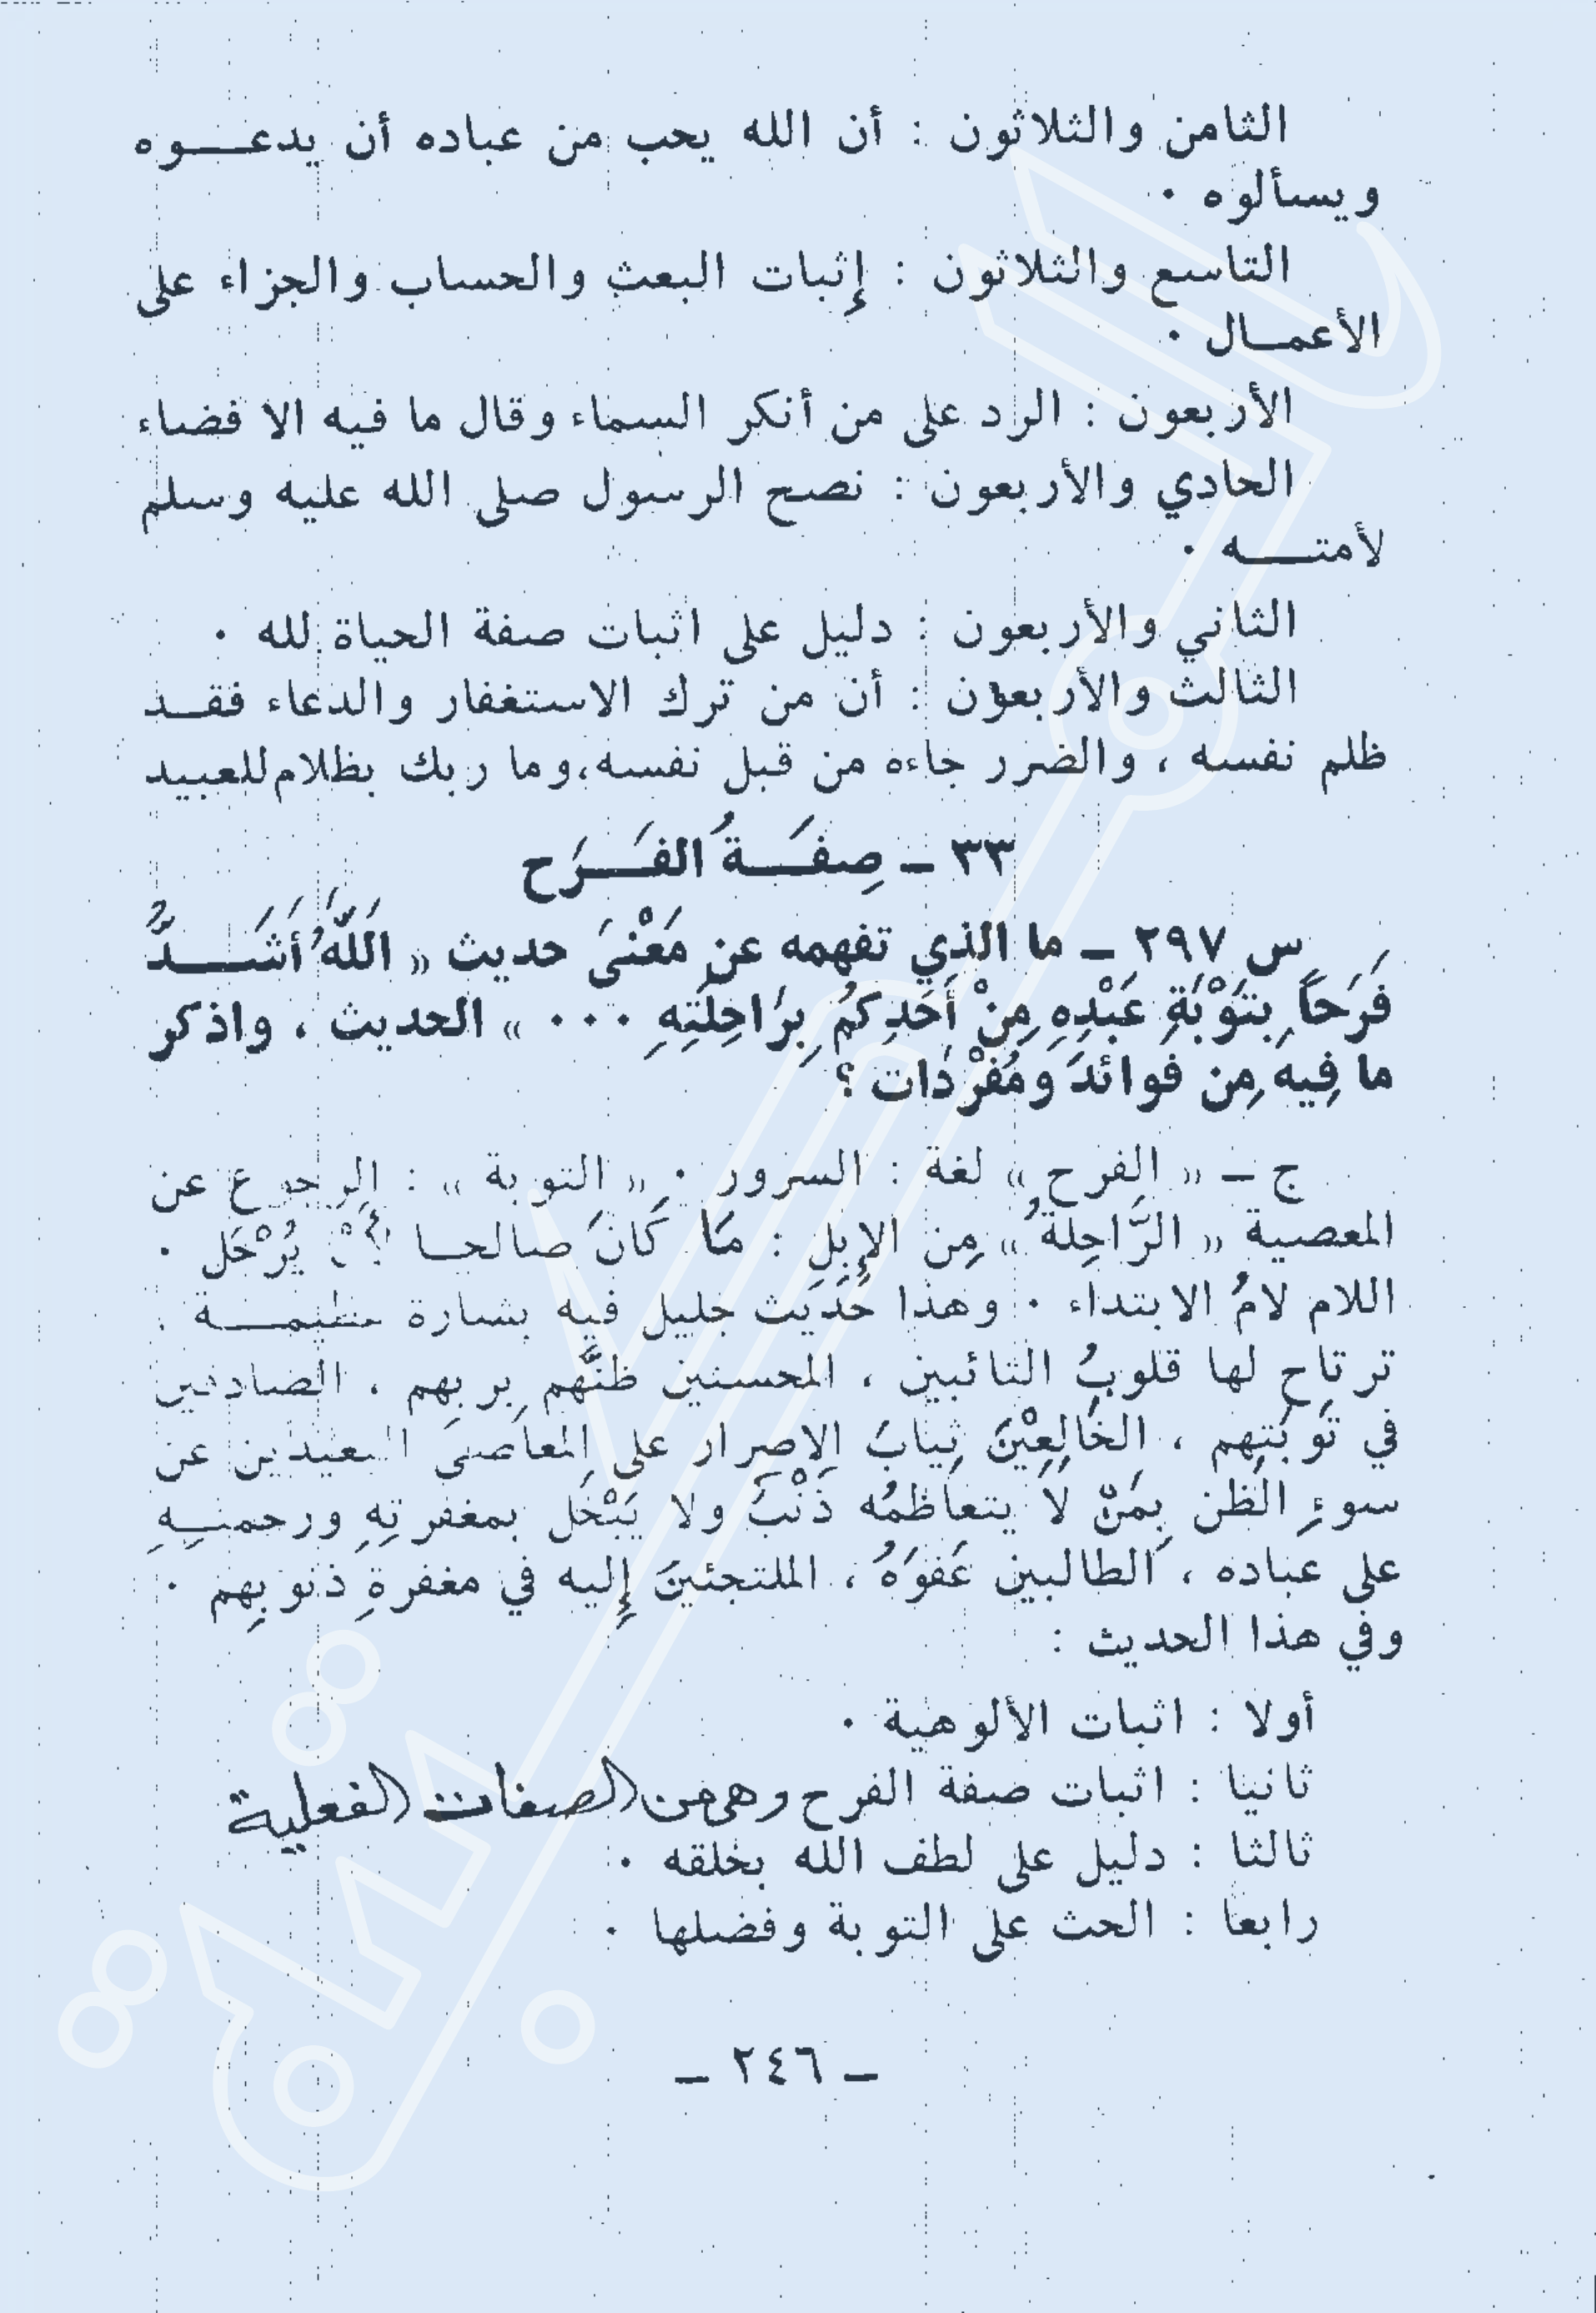 الثامن والثلاثون : أن الله يحب من عباده أن يدعـــوه
ويسألوه ٠
التاسع والثلاثون : إثبات البعث والحساب والجزاء على
الأعمـال ٠
الأربعون : الرد على من أنكر السماء وقال ما فيه الا فضاء
الحادي والأربعون : نصح الرسول صلى الله عليه وسلم
لأمتـــه ٠
الثاني والأربعون : دليل على اثبات صفة الحياة لله ٠
الثالث والأربعون : أن من ترك الاستغفار والدعاء فقـد
ظلم نفسه ، والضرر جاءه من قبل نفسه،وما ربك بظلام للعبيد
٣٣ ــ صِفَــةُ الفَــرَح
س ٢٩٧ ــ ما الذي تفهمه عن مَعْنىَ حديث « اَللَّهُ أشَــدُّ
فَرَحَاً بِتَوْبَةِ عَبْدِهِ مِنْ أَحَدِكمُ بِرَاحِلَتِهِ ٠٠٠ » الحديث ، واذكر
ما فِيهَ مِن فوائدَ ومُفْرَدَات ؟
ج ــ « الفرح » لغة : السرور ٠ « التوبة » : الرجوع عن
المعصية « الرَّاحِلةُ » مِن الإبِلِ : مَا كَانَ صالحـا يُرْحَل ٠
اللام لامُ الابتداء ٠ وهذا حَدَيث جليل فيه بشارة عظيمــة
ترتاح لها قلوبُ التائبين ، المحسنين ظنَّهم بربهم ، الصادقين
في تَوبَتِهم ، الخَالِعِيْنَ ثِيابَ الإصرار على المعاصىَ البعيدين عن
سوءِ الظن بِمَنْ لاَ يتعاظمُه ذَنْبَ ولا يَبْخَل بمغفرتِهِ ورحمتـِـهِ
على عباده ، الطالبين عَفوَهُ ، الملتجئينَ إليه في مغفرةِ ذنوبِهم ٠
وفي هذا الحديث :
أولا : اثبات الألوهية ٠
ثانيا : اثبات صفة الفرح وهى من الصفات الفعلية
ثالثا : دليل على لطف الله بخلقه ٠
رابعا : الحث على التوبة وفضلها ٠
ــ ٢٤٦ ــ